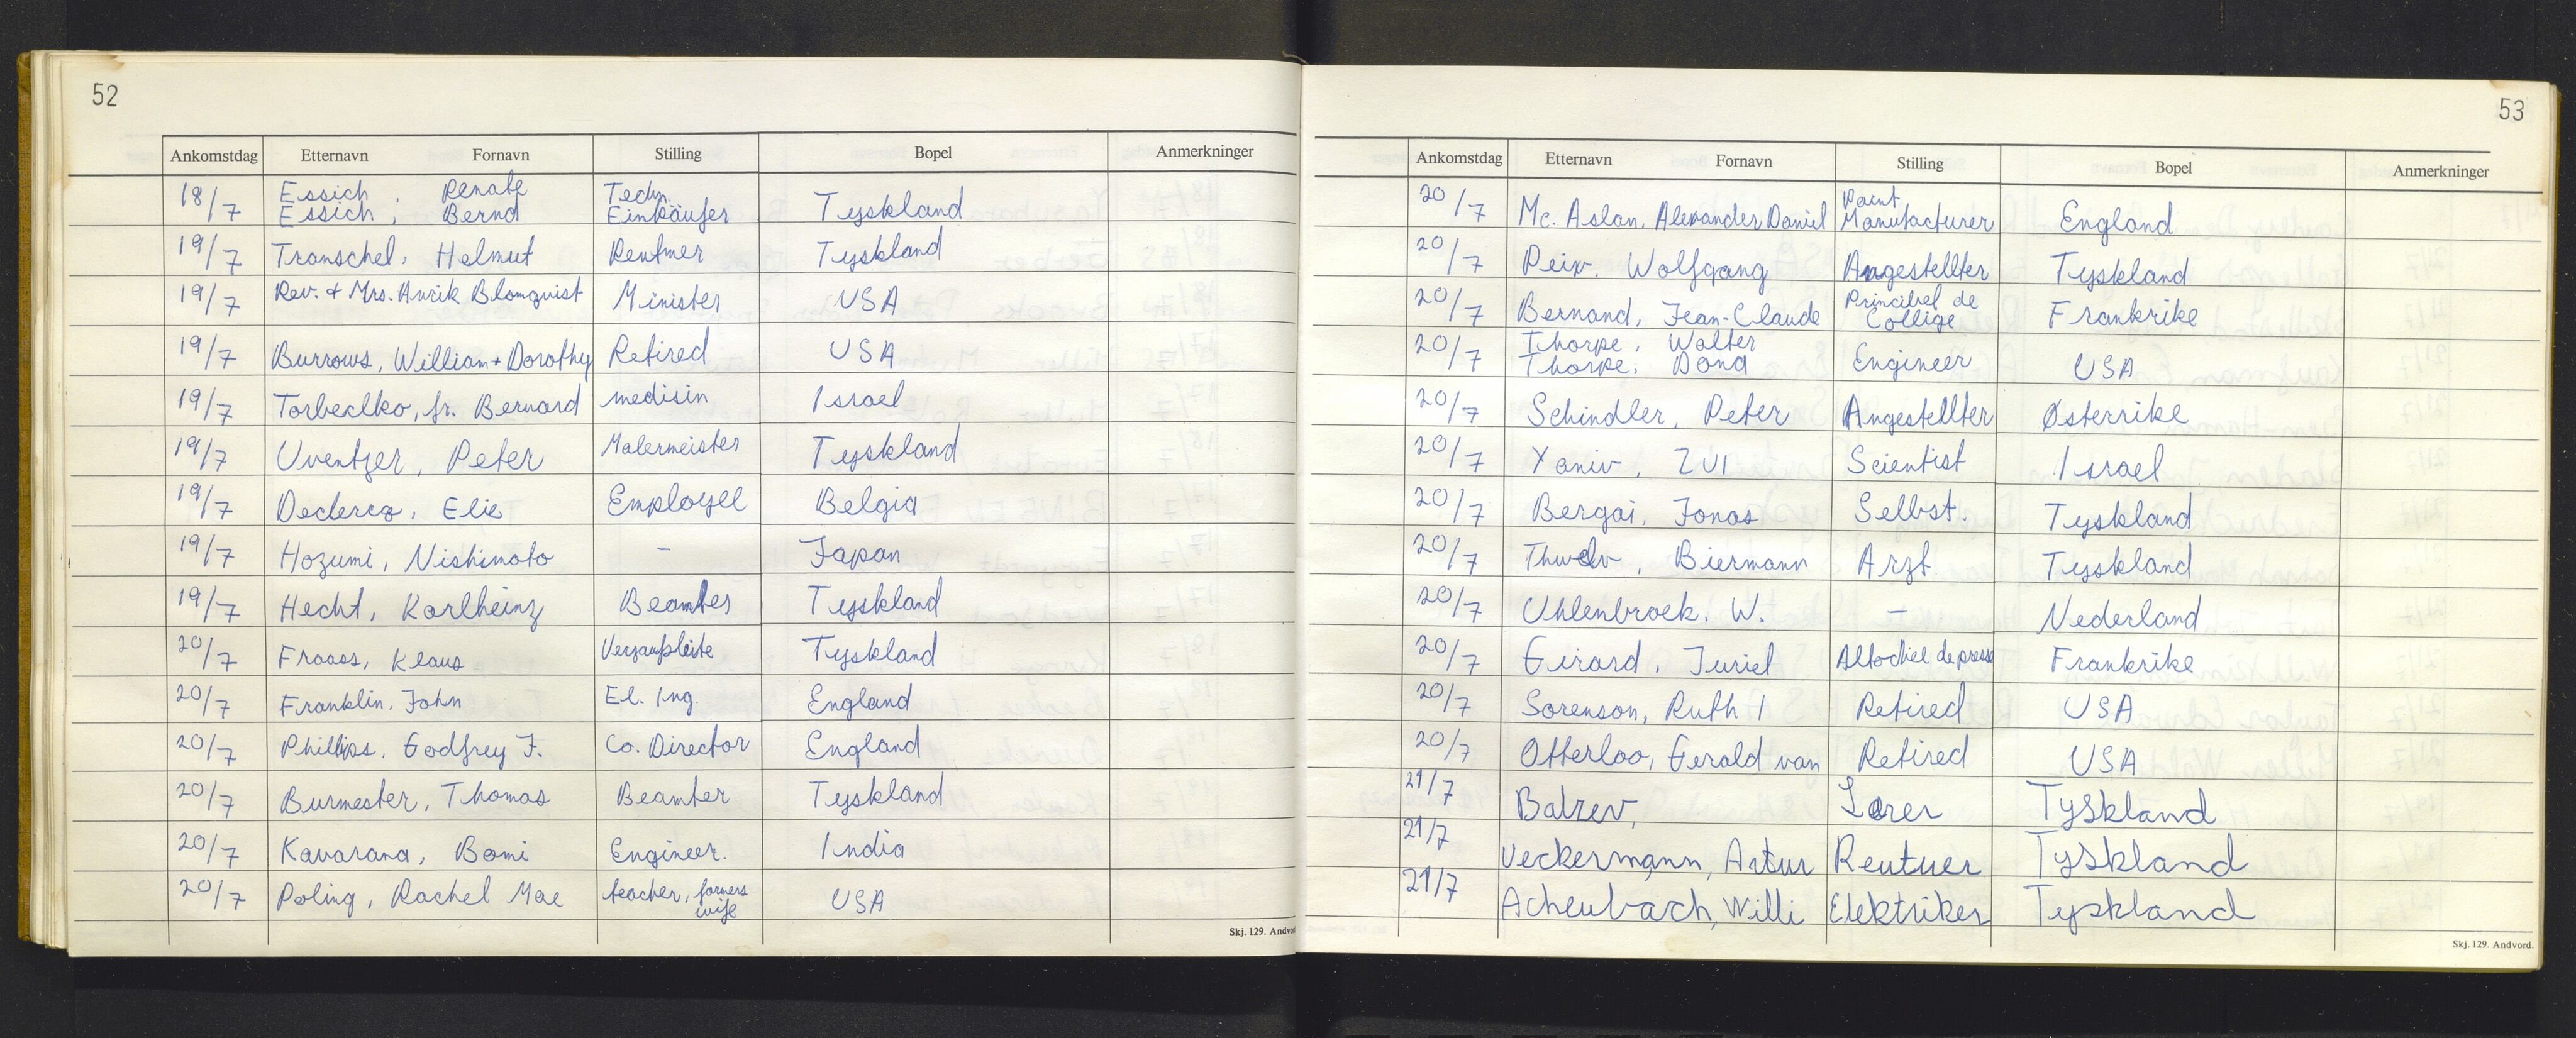 52
Ankomstdag Etternavn Fornavn Stilling Bopel Anmerkninger
18/7 Essich, Renate Techn.
Essich, Bernd Einkäufer Tyskland
19/7 Transchel, Helmut Rentner Tyskland
19/7 Rev. + Mrs. Anrik Blomqvist Minister USA
19/7 Burrows, William + Dorothy Retired USA
19/7 Torbeclko, fr. Bernard medisin Israel
19/7 Uventzer, Peter Malermeister Tyskland
19/7 Declercq, Elie Employee Belgia
19/7 Hozumi, Nishimoto - Japan
19/7 Hecht, Karlheinz Beamter Tyskland
20/7 Fraass, Klaus Tyskland
20/7 Franklin, John El. Ing. England
20/7 Phillips, Godfrey F. Co. Director England
20/7 Burmester, Thomas Beamter Tyskland
20/7 Kavarana, Bomi Engineer. India
20/7 Poling, Rachel Mae teacher, farmers
wife USA
Skj. 129. Andvord
53
Ankomstdag Etternavn Fornavn Stilling Bopel Anmerkninger
20/7 Mc. Aslan, Alexander Daniel Paint
Manufacturer England
20/7 Peix. Wolfgang Angestellter Tyskland
20/7 Bernand, Jean-Claude Principel de
Collige Frankrike
20/7 Thorpe, Walter
Thorpe, Dona Engineer USA
20/7 Schindler, Peter Angestellter Østerrike
20/7 Yaniv, ZUI Scientist Israel
20/7 Bergai, Jonas Selbst. Tyskland
20/7 Biermann Arzt Tyskland
20/7 Uhlenbroek. W. - Nederland
20/7 Girard, Juriel de presse Frankrike
20/7 Sorenson, Ruth I Retired USA
20/7 Otterloo, Gerald van Retired USA
21/7 Balzev, Lerer Tyskland
21/7 Veckermann, Artur Rentner Tyskland
21/7 Achenbach, Willi Elektriker Tyskland
Skj. 129. Andvord.